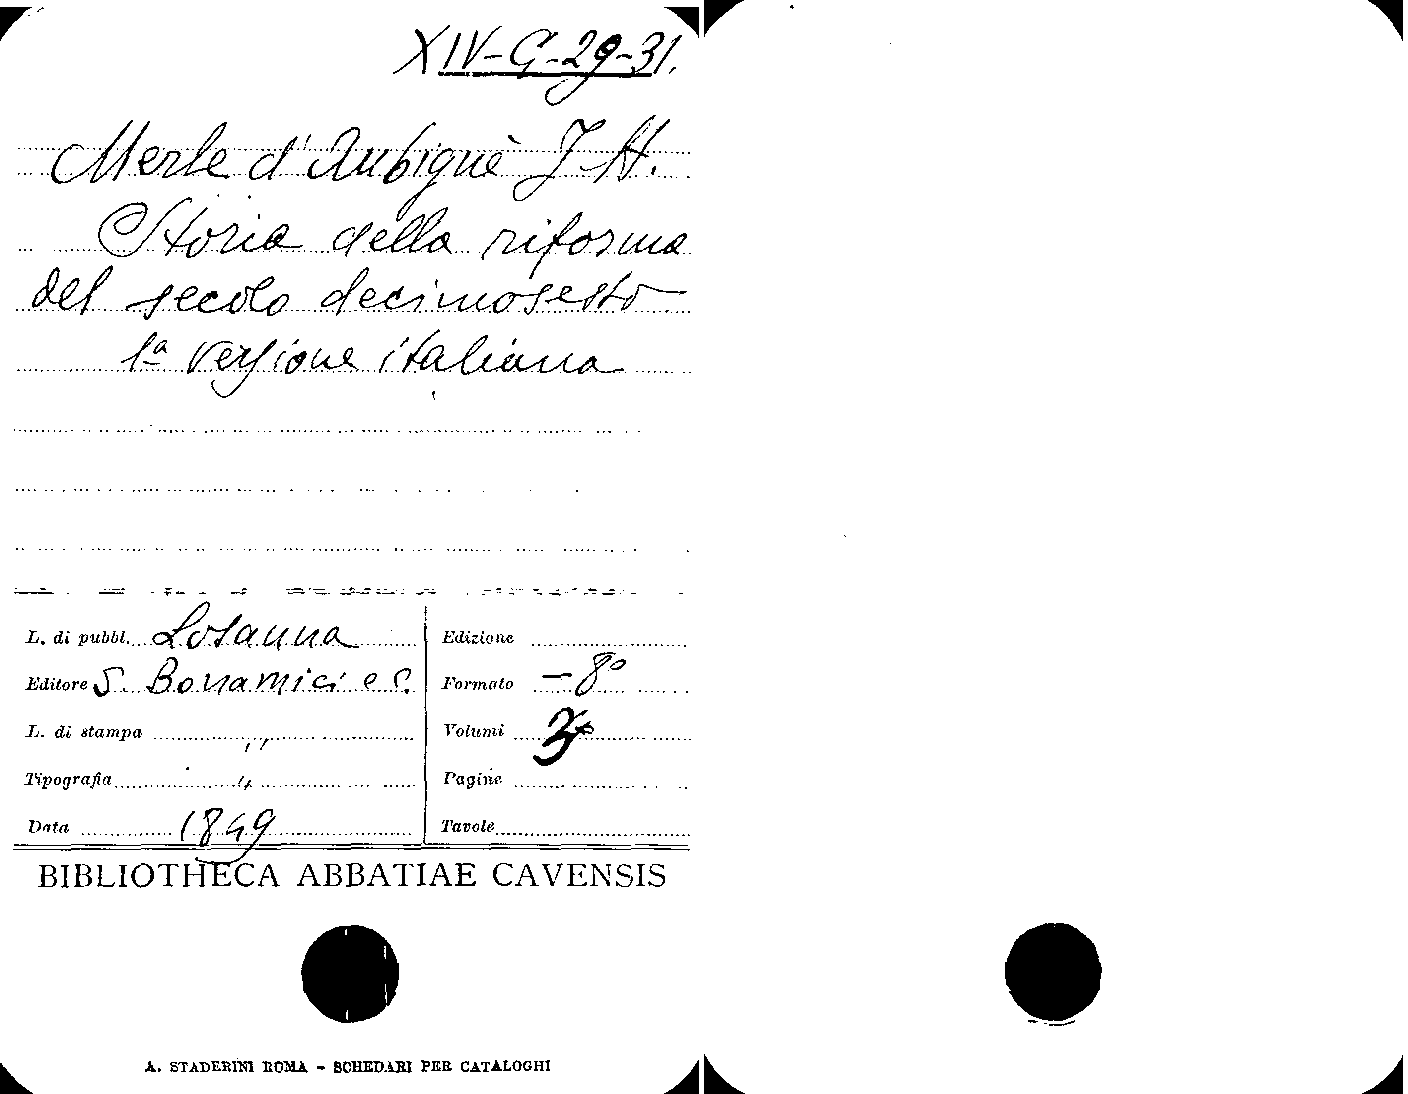 XIV-G-29-31.
Merle d'Aubignè J. H.
Storia della riforma
del secolo decimosesto
1ª versione italiana
L. di pubbl. Losanna
Editore S. Bonamici e C.
L. di stampa "
Tipografia "
Data 1849
Edizione
Formato - 8º
Volumi 3
Pagine
Tavole
BIBLIOTHECA ABBATIAE CAVENSIS
A. STADERINI ROMA - SCHEDARI PER CATALOGHI